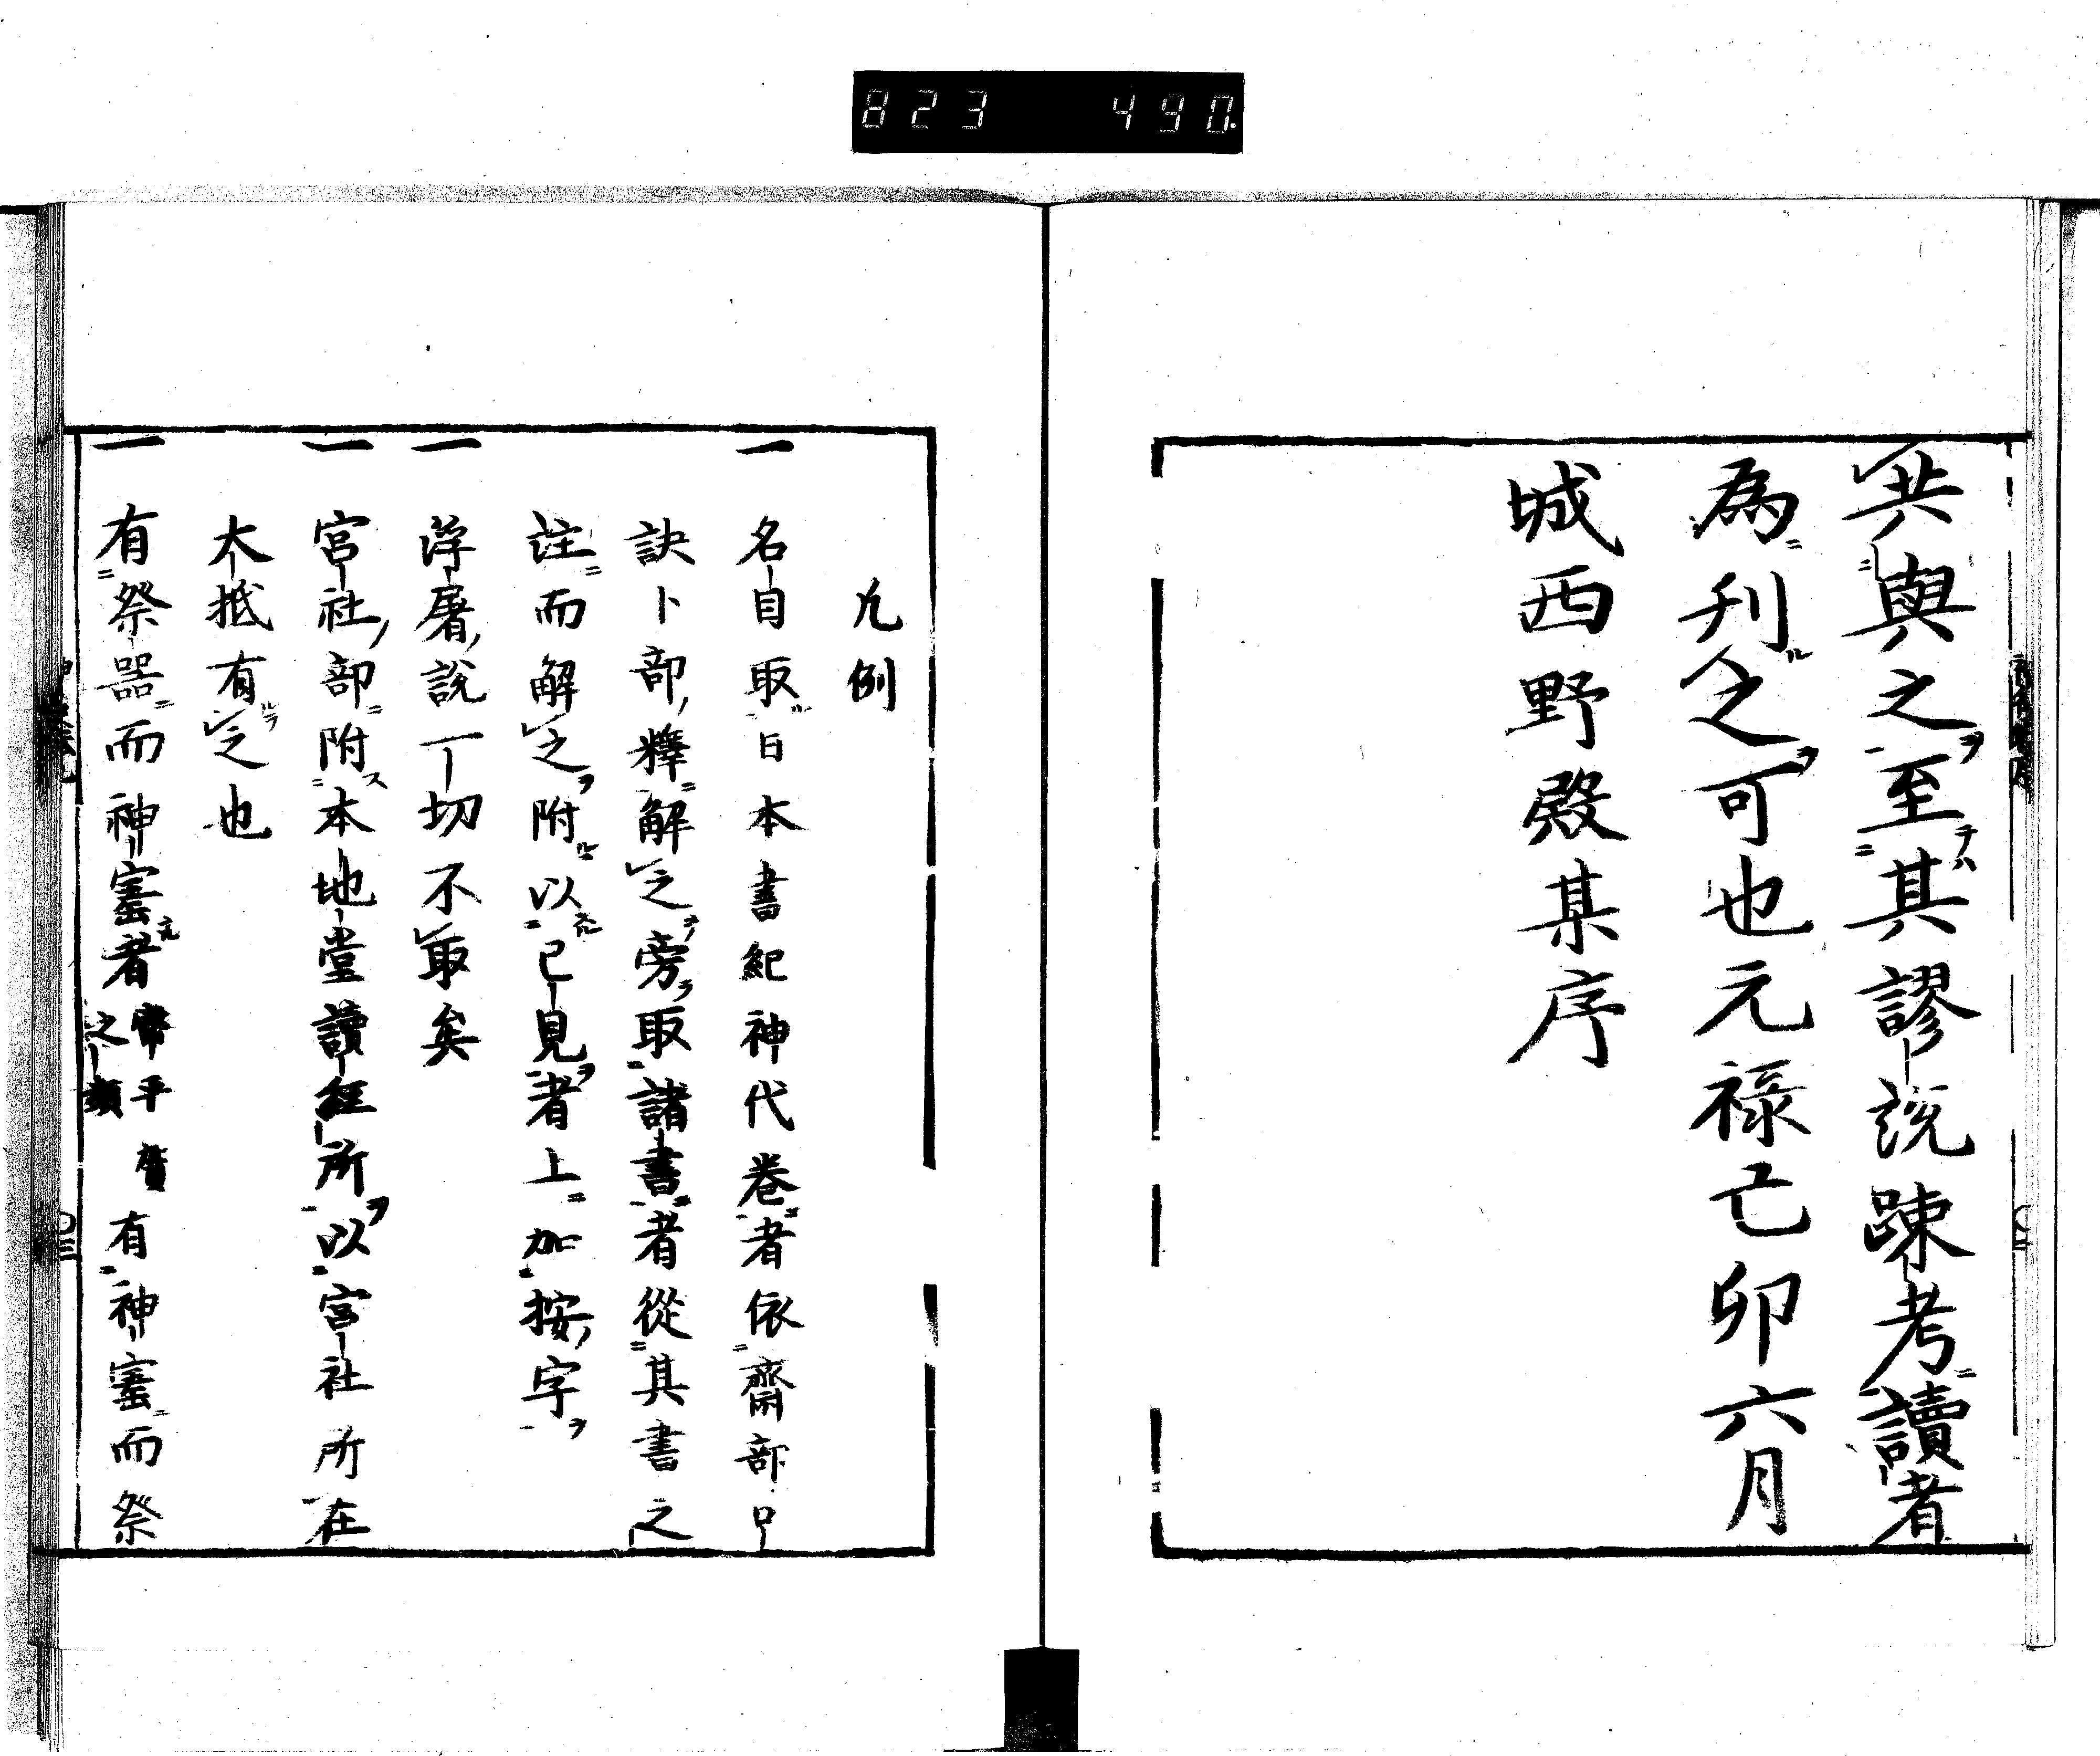 823 490.
共與之至其謬説踈考讀者
為刋之可也元禄己卯六月
城西野殿某序
凡例
一 名目取日本書紀神代巻者依齋部口
訣卜部釋解之旁取諸書者從其書之
註而解之附以己見者上加按字
一 浮屠説一切不取矣
一 宮社部附本地堂讀經所以宮社所在
大抵有之也
一 有祭器而神寳者幣平賀之類有神寳而祭